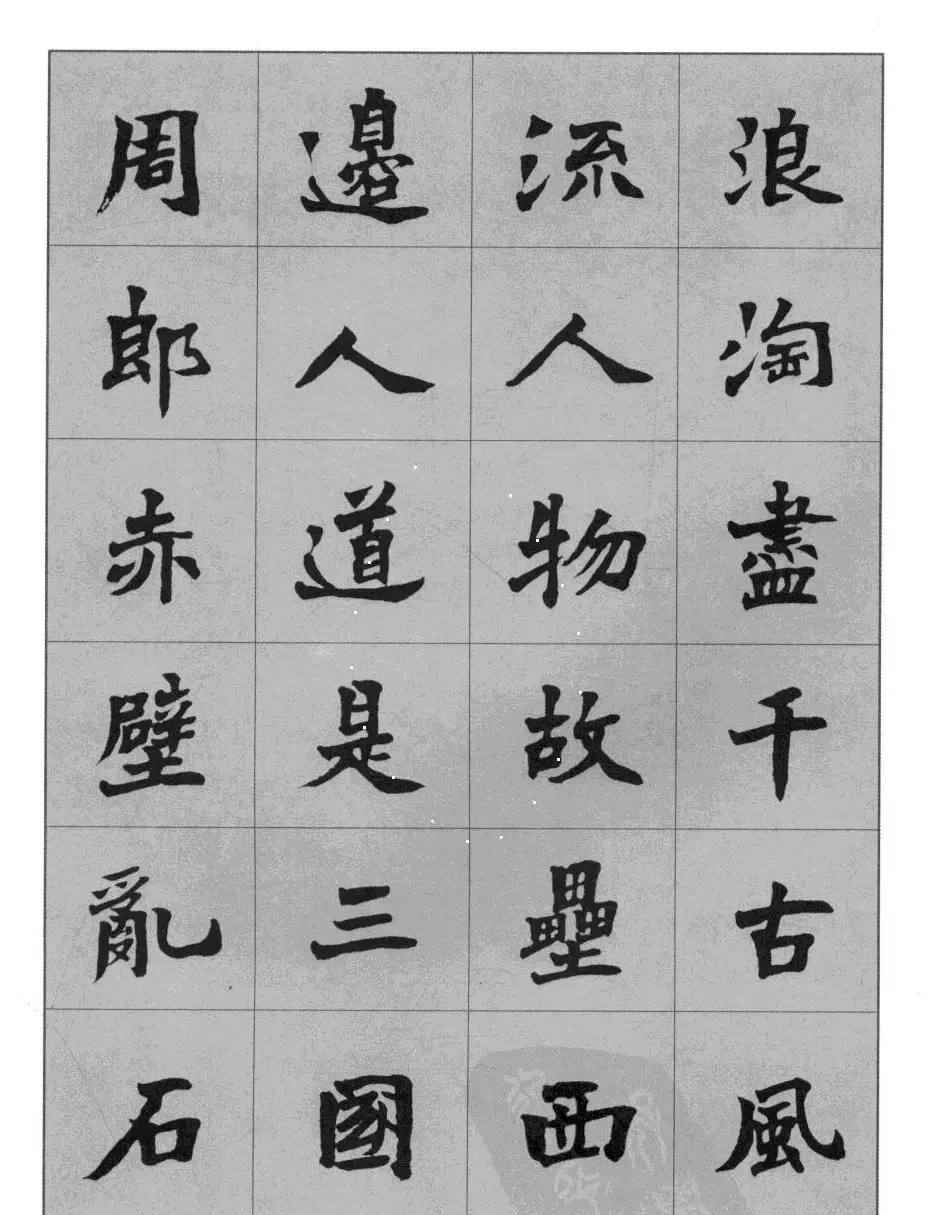 浪淘盡千古風
流人物故壘西
邊人道是三國
周郎赤壁亂石